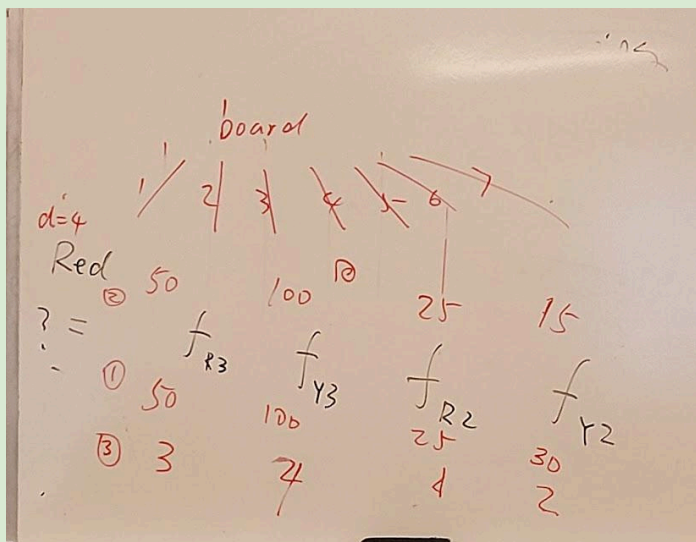 board
1 2 3 4 5 6 7
d=4
Red
② 50 100 25 15
? = fR3 fY3 fR2 fY2
① 50 100 25 30
③ 3 4 1 2